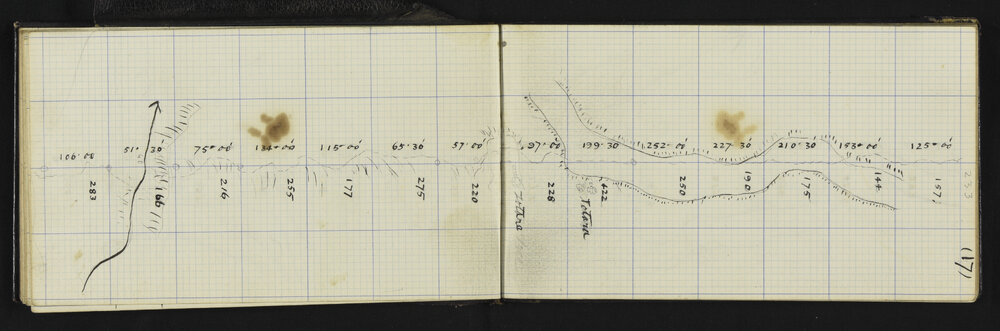 106·00 51° 30′ 75°00′ 134°00′ 115°00′ 65·30′ 57·00′ 97·00′ 199·30′ 252·00′ 227·30′ 210°30′ 153°00′ 125°00
283
166
216
255
177
275
220
Totara
228
422
Totara
250
190
175
144
157
233
(17)